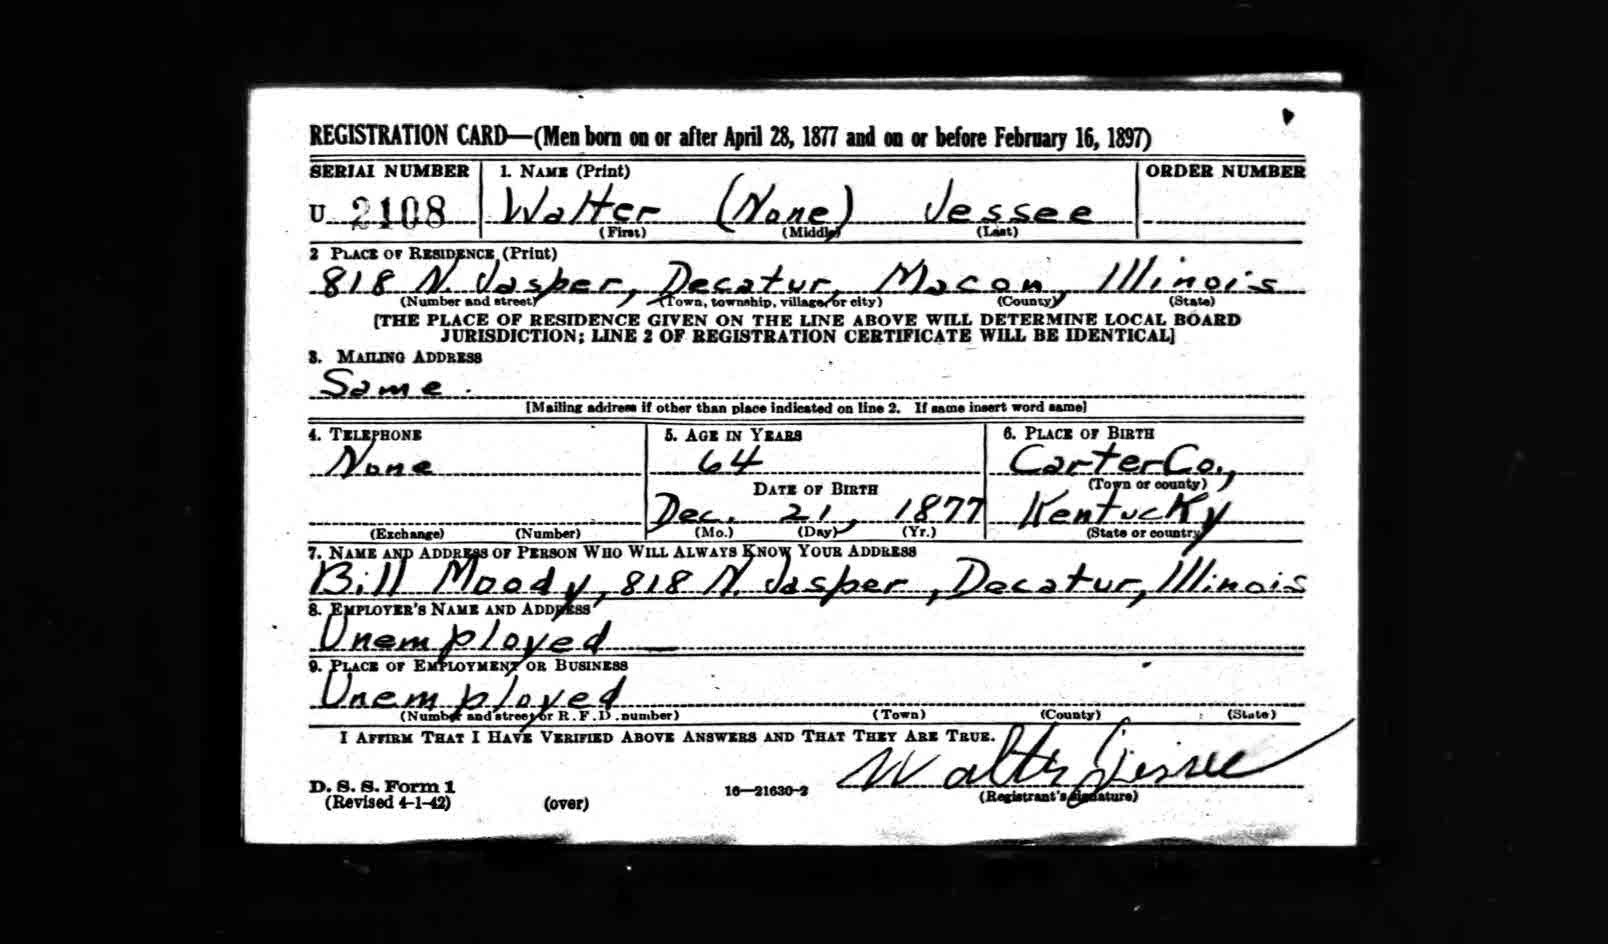 REGISTRATION CARD—(Men born on or after April 28, 1877 and on or before February 16, 1897)
SERIAL NUMBER 1. NAME (Print) ORDER NUMBER
U 2108 Walter (None) Jessee
(First) (Middle) (Last)
2 PLACE OF RESIDENCE (Print)
818 N. Jasper, Decatur, Macon, Illinois
(Number and street) (Town, township, village, or city) (County) (State)
[THE PLACE OF RESIDENCE GIVEN ON THE LINE ABOVE WILL DETERMINE LOCAL BOARD
JURISDICTION; LINE 2 OF REGISTRATION CERTIFICATE WILL BE IDENTICAL]
3. MAILING ADDRESS
Same.
[Mailing address if other than place indicated on line 2. If same insert word same]
4. TELEPHONE 5. AGE IN YEARS 6. PLACE OF BIRTH
None 64 Carter Co.,
DATE OF BIRTH (Town or county)
Dec. 21, 1877 Kentucky
(Exchange) (Number) (Mo.) (Day) (Yr.) (State or country)
7. NAME AND ADDRESS OF PERSON WHO WILL ALWAYS KNOW YOUR ADDRESS
Bill Moody, 818 N. Jasper, Decatur, Illinois
8. EMPLOYER'S NAME AND ADDRESS
Unemployed —
9. PLACE OF EMPLOYMENT OR BUSINESS
Unemployed
(Number and street or R. F. D. number) (Town) (County) (State)
I AFFIRM THAT I HAVE VERIFIED ABOVE ANSWERS AND THAT THEY ARE TRUE.
Walter Jessee
D. S. S. Form 1
(Revised 4-1-42) (over) 16—21630-2 (Registrant's signature)